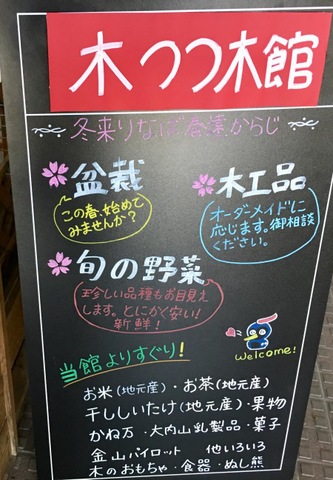 木つつ木館
冬来りなば春遠からじ
盆栽
この春、始めて
みませんか?
木工品
オーダーメイドに
応じます。御相談
ください。
旬の野菜
珍しい品種もお目見え
します。とにかく安い!
新鮮!
Welcome!
当館よりすぐり!
お米(地元産)・お茶(地元産)
干ししいたけ(地元産)・果物
かね万・大内山乳製品・菓子
金山パイロット 他いろいろ
木のおもちゃ・食器・ぬし熊